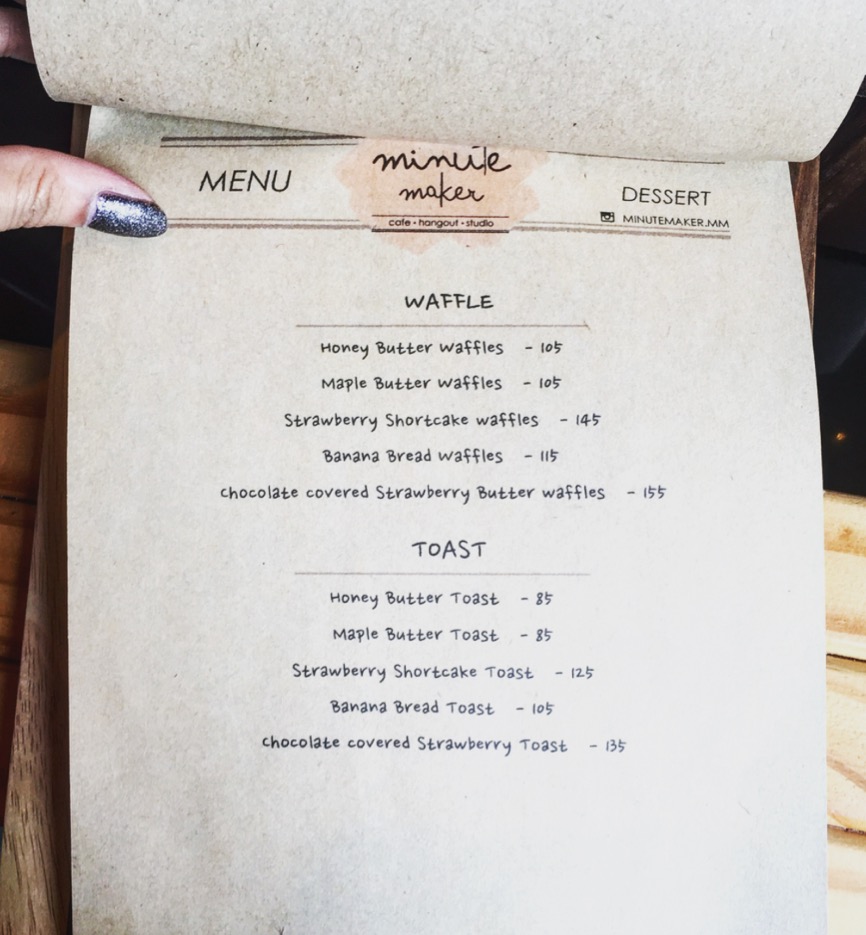 minute
MENU
maker
DESSERT
cafe • hangout • studio
MINUTEMAKER.MM
WAFFLE
Honey Butter Waffles - 105
Maple Butter Waffles - 105
Strawberry Shortcake waffles - 145
Banana Bread Waffles - 115
chocolate covered Strawberry Butter waffles - 155
TOAST
Honey Butter Toast - 85
Maple Butter Toast - 85
Strawberry Shortcake Toast - 125
Banana Bread Toast - 105
chocolate covered Strawberry Toast - 135